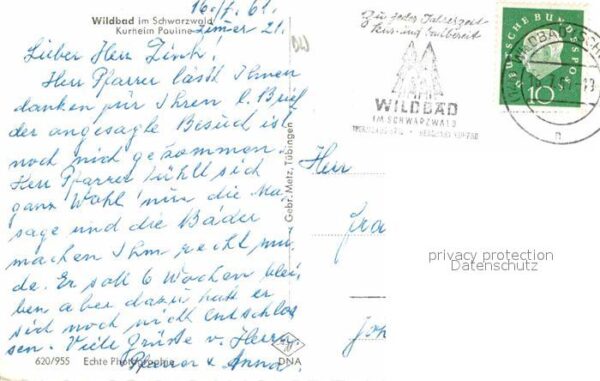 16./7. 61.
Wildbad im Schwarzwald
Kurheim Pauline Zimer 21.
Lieber Herr Zink!
Herr Pfarrer lässt Ihnen
danken für Ihren l. Brief
der angesagte Besuch ist
noch nicht gekommen.
Herr Pfarrer fühlt sich
ganz Wohl nur die Ma
sage und die Bäder
machen Ihm recht mü-
de. Er soll 6 Wochen blei
ben aber dazu hatt er
sich noch nicht entschlos
sen. Viele Grüße v. Herrn
Pfarrer u. Anna.
620/955 Echte Photographie
DNA
Gebr. Metz, Tübingen
Zu jeder Jahreszeit
Kur- und
WILDBAD
IM SCHWARZWALD
DEUTSCHE BUNDESPOST
10
WILDBAD (SCHW
Herr
privacy protection
Datenschutz